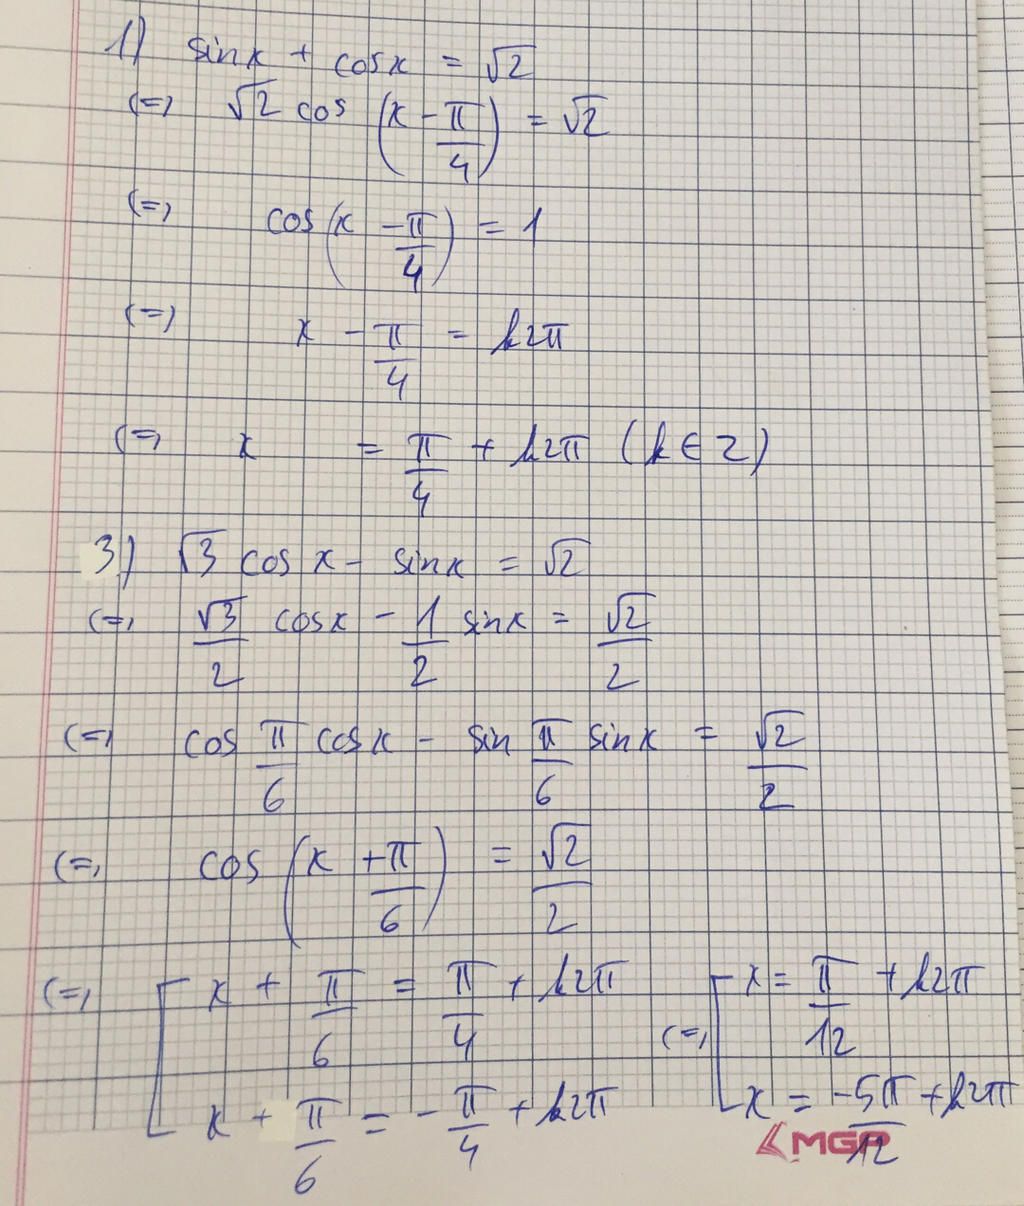 1) sinx + cosx = √2
(=) √2 cos (x - π/4) = √2
(=) cos (x - π/4) = 1
(=) x - π/4 = k2π
(=) x = π/4 + k2π (k ∈ Z)
3) √3 cosx - sinx = √2
(=) √3/2 cosx - 1/2 sinx = √2/2
(=) cos π/6 cosx - sin π/6 sinx = √2/2
(=) cos (x + π/6) = √2/2
(=) [ x + π/6 = π/4 + k2π (=) [ x = π/12 + k2π
x + π/6 = -π/4 + k2π x = -5π/12 + k2π
MGP